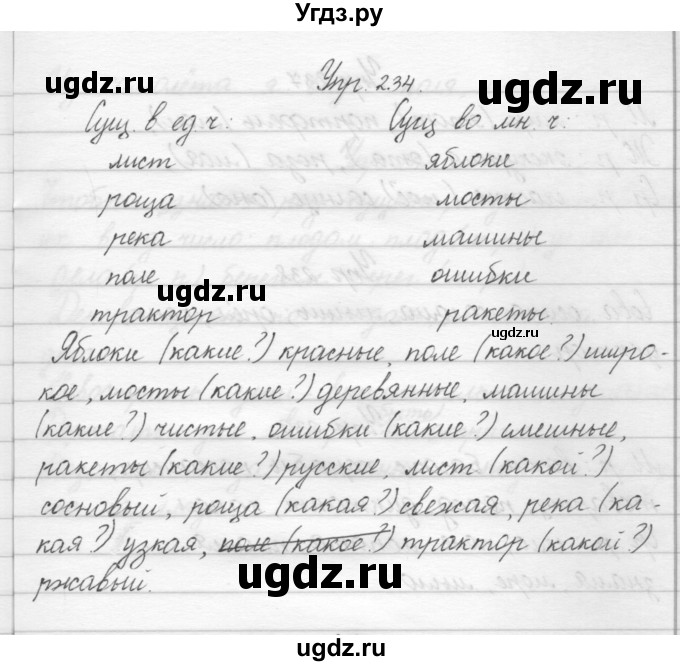 Угдз.ру
Упр. 234.
ugdz.ru ugdz.ru
Сущ. в ед ч: Сущ во мн. ч:
лист яблоки
роща мосты
река машины
поле ошибки
ugdz.ru
трактор ракеты.
ugdz.ru
Яблоки (какие?) красные, поле (какое?) широ-
кое, мосты (какие?) деревянные, машины
(какие?) чистые, ошибки (какие?) смешные,
ракеты (какие?) русские, лист (какой?)
ugdz.ru ugdz.ru
сосновый, роща (какая?) свежая, река (ка-
кая?) узкая, поле (какое?) трактор (какой?)
ugdz.ru ugdz.ru
ржавый.
ugdz.ru